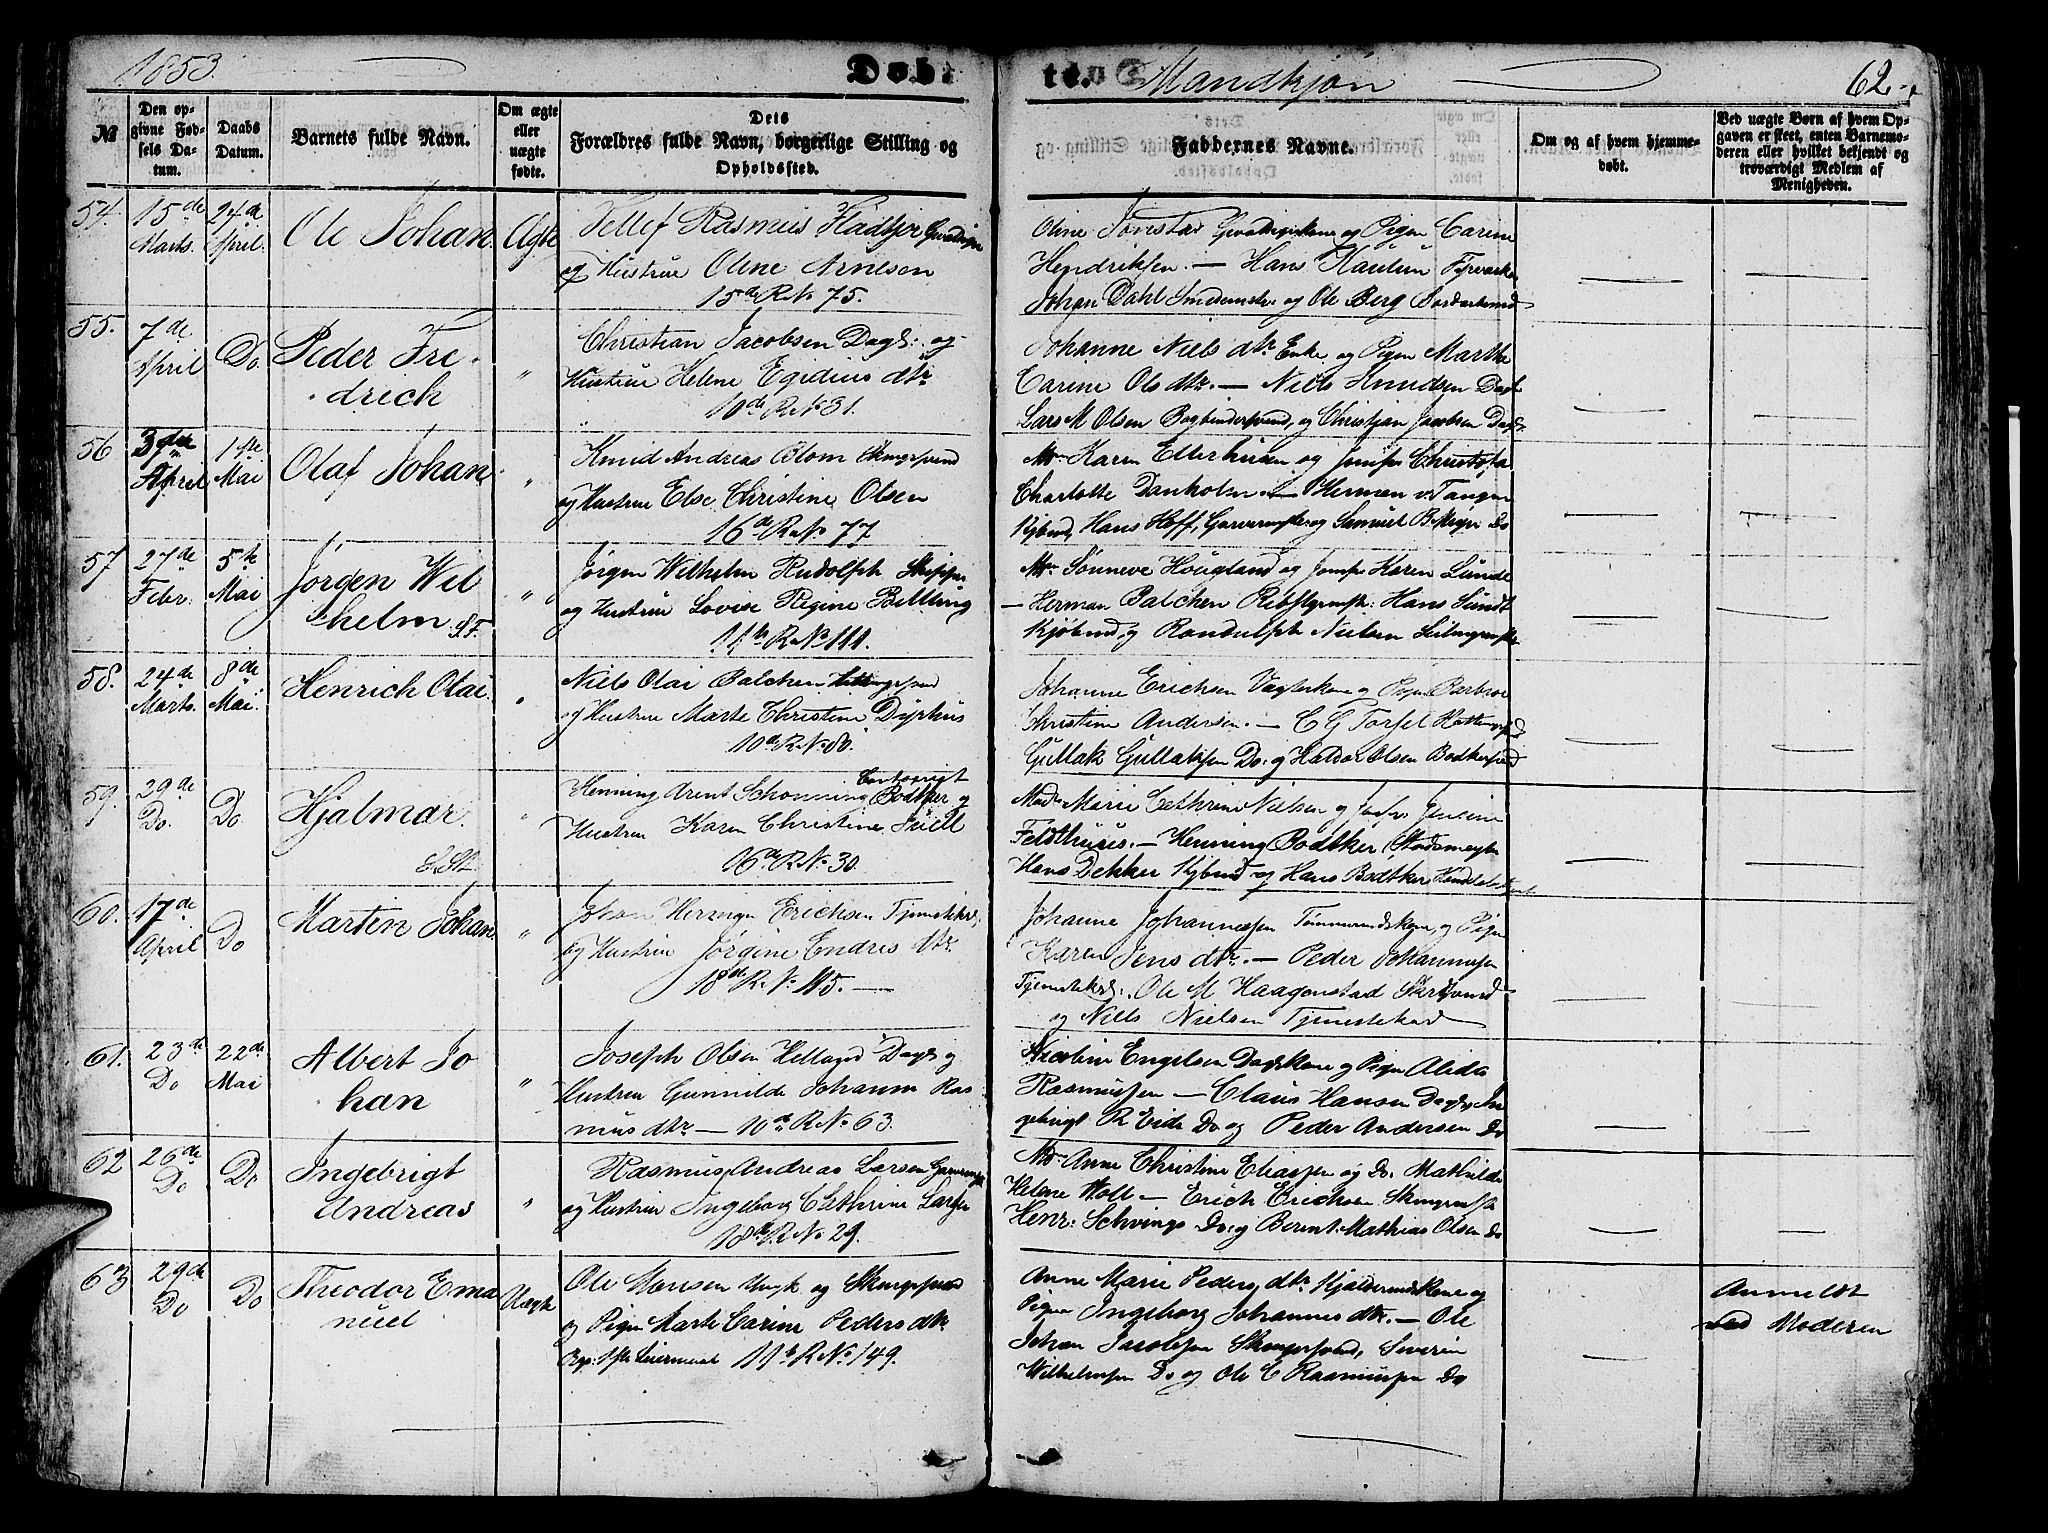 1853.
Døb-
te.
Mandkjøn
62.
№
Den op-
givne Fød-
sels Da-
tum.
Daabs
Datum.
Barnets fulde Navn.
Om ægte
eller
uægte
fødte.
Dets
Forældres fulde Navn, borgerlige Stilling og
Opholdssted.
Faddernes Navne.
Om og af hvem hjemme-
døbt.
Ved uægte Børn af hvem Op-
gaven er skeet, enten Barnemo-
deren eller hvilket bekjendt og
troværdigt Medlem af
Menigheden.
54.
15de
Marts.
24de
April.
Ole Johan
Ægte
Tellef Rasmus
og Hustrue Oline Arnesen
15de R. No 75.
Oline og Pigen Carine
Hendriksen. — Hans
Johan Dahl og Ole Berg
55.
7de
April
Do
Peder Fre-
drich
"
Christian Jacobsen Dags: og
Hustrue Helene Egidius dtr
10de R. No 31.
Johanne Niels dtr Enke og Pigen Marthe
Carine Ols dtr. — Niels Knudsen Dags
Lars M Olsen Bogbindersvend, og Christian Jacobsen Dags:
56
3die
April
1ste
Mai
Olaf Johan
"
Knud Andreas Blom
og Hustrue Else Christine Olsen
16de R. No 77
Md. Karen Ellerhusen og Jomfr Christofa
Charlotte Danholm. — Herman v: Tangen
Kjøbmd, Hans Hoff, og Samuel Do
57
27de
Febr.
5te
Mai
Jørgen Wil
helm
"
Jørgen Wilhelm Rudolph Skipper
og Hustrue Lovise Regine Bilting
11te R. No 111.
Md. Sønneve Hougland og Jomfr Karen Lunde
— Herman Balchen Hans Sundt
Kjøbmd, og Randulph Nielsen
58.
24de
Marts.
8de
Mai
Henrich Olai
"
Niels Olai Balchen
og Hustrue Marte Christine Dyrhus
10de R. No 80.
Johanne Erichsen og Pigen Barbroe
Christine Andersen. — C G
Gullak Gullaksen Do: og Haldor Olsen Bødkersvend
59.
29de
Do.
Do
Hjalmar.
"
Henning Arent Schonning Bødtker og
Hustrue Karen Christine
16de R. No 30.
Mad. Marie Cathrine Nielsen og Jomfr.
Feldthuus. — Henning Bødtker
Hans Dekker Kjøbmd og Hans Bødtker
60.
17de
April
Do
Martin Johan
"
Johan Herman Erichsen Tjenestekd;
og Hustrue Jørgine Endres dtr
18de R. No 115. —
Johanne Johannessen Tømmermdskone, og Pigen
Karen Jens dtr. — Peder Johannessen
Tjenestekd:, Ole M Haagenstad
og Niels Nielsen Tjenestekarl
61.
23de
Do
22de
Mai
Albert Jo
han
"
Joseph Olsen Helland Dags og
Hustrue Gunnilde Johanne Ras-
mus dtr — 10de R. No 63.
Nicoline Engelsen Dagskone og Pigen Alida
Rasmussen — Claus Hansen Dags, In
gebrigt R Eide Do og Peder Andersen Do
62
26de
Do
Do
Ingebrigt
Andreas
"
Rasmus Andreas Larsen
og Hustrue Ingeborg Cathrine Larsen
18de R. No 29.
Md. Anne Christine Eliassen og Do. Mathilde
Helene Holl — Erich Erichsen
Henr: Schvings Do: og Berent Mathias Olsen Do
63
29de
Do
Do
Theodor Ema
nuel
Uægte
Ole Monsen Ungk og
og Pigen Marte Carine Peders dtr
1ste Leiermaal 11te R. No 149.
Anne Marie Peders dtr og
Pigen Ingeborg Johannes dtr. — Ole
Johan Jacobsen Severin
Wilhelmsen Do og Ole C Rasmussen Do
Anmeldt
ved Moderen